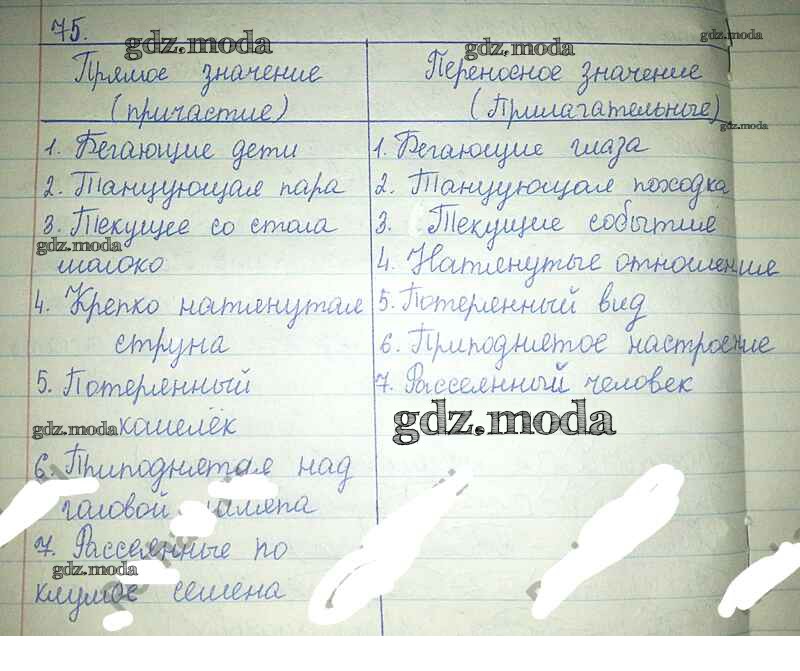 75.
gdz.moda
gdz.moda
gdz.moda
Прямое значение
(причастие)
Переносное значение
(Прилагательные)
gdz.moda
1. Бегающие дети
2. Танцующая пара
3. Текущее со стола
gdz.moda
молоко
4. Крепко натянутая
струна
5. Потерянный
gdz.moda кошелёк
6. Приподнятая над
головой шляпа
7. Рассеянные по
gdz.moda
клумбе семена
1. Бегающие глаза
2. Танцующая походка
3. Текущие событие
4. Натянутые отношение
5. Потерянный вид
6. Приподнятое настроение
7. Рассеянный человек
gdz.moda